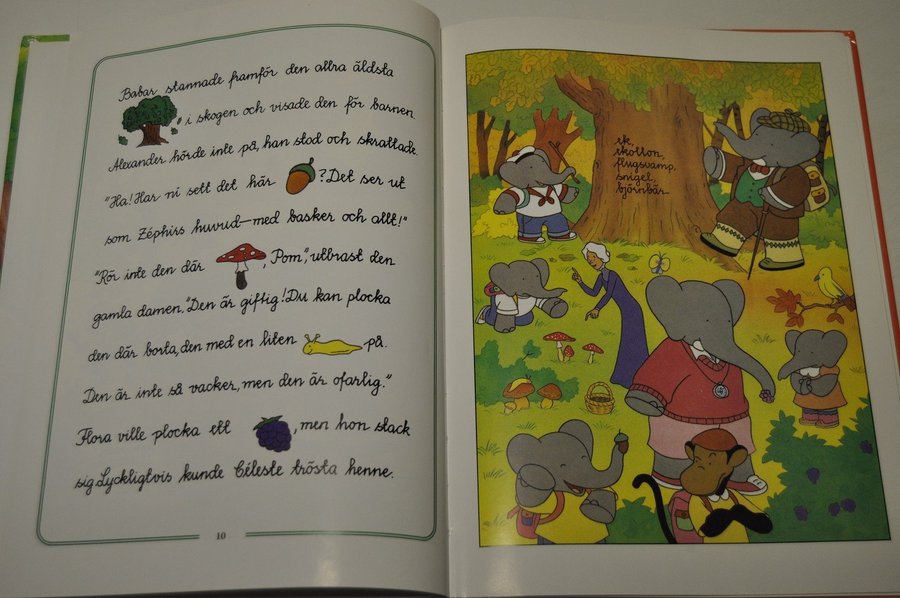 Babar stannade framför den allra äldsta
, i skogen och visade den för barnen.
Alexander hörde inte på, han stod och skrattade.
"Ha! Har ni sett det här ? Det ser ut
som Zéphirs huvud—med basker och allt!"
"Rör inte den där , Pom", utbrast den
gamla damen. "Den är giftig! Du kan plocka
den där borta, den med en liten på.
Den är inte så vacker, men den är ofarlig."
Flora ville plocka ett , men hon stack
sig. Lyckligtvis kunde Céleste trösta henne.
10
ek,
ekollon,
flugsvamp,
snigel,
björnbär